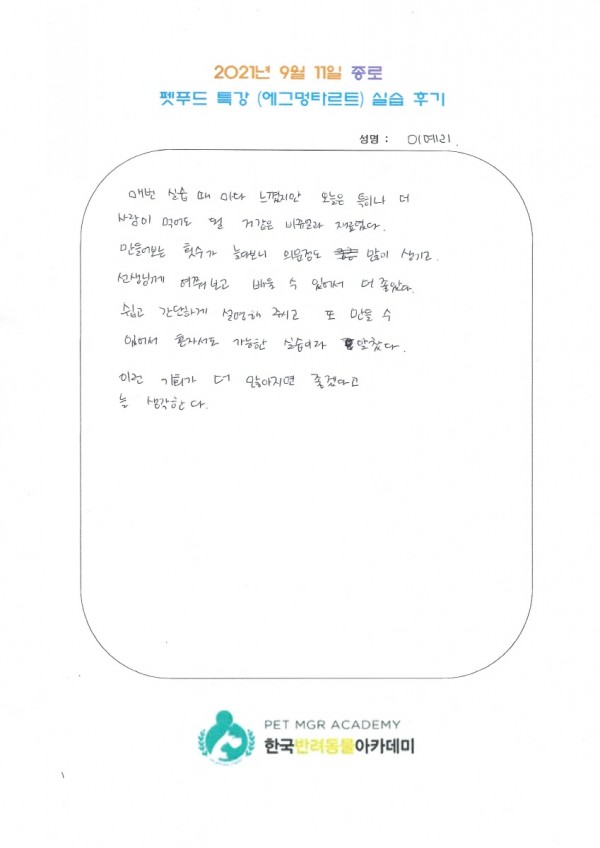 2021년 9월 11일 종로
펫푸드 특강 (에그멍타르트) 실습 후기
성명 : 이예리.
매번 실습 때 마다 느꼈지만 오늘은 특히나 더
사람이 먹어도 될 거같은 비쥬얼라 재료였다.
만들어보는 횟수가 늘다보니 의문점도 많이 생기고
선생님께 여쭤보고 배울 수 있어서 더 좋았다.
쉽고 간단하게 설명해 주시고 또 만들 수
있어서 혼자서도 가능한 실습이라 알찼다.
이런 기회가 더 많아지면 좋겠다고
늘 생각한다.
PET MGR ACADEMY
한국반려동물아카데미